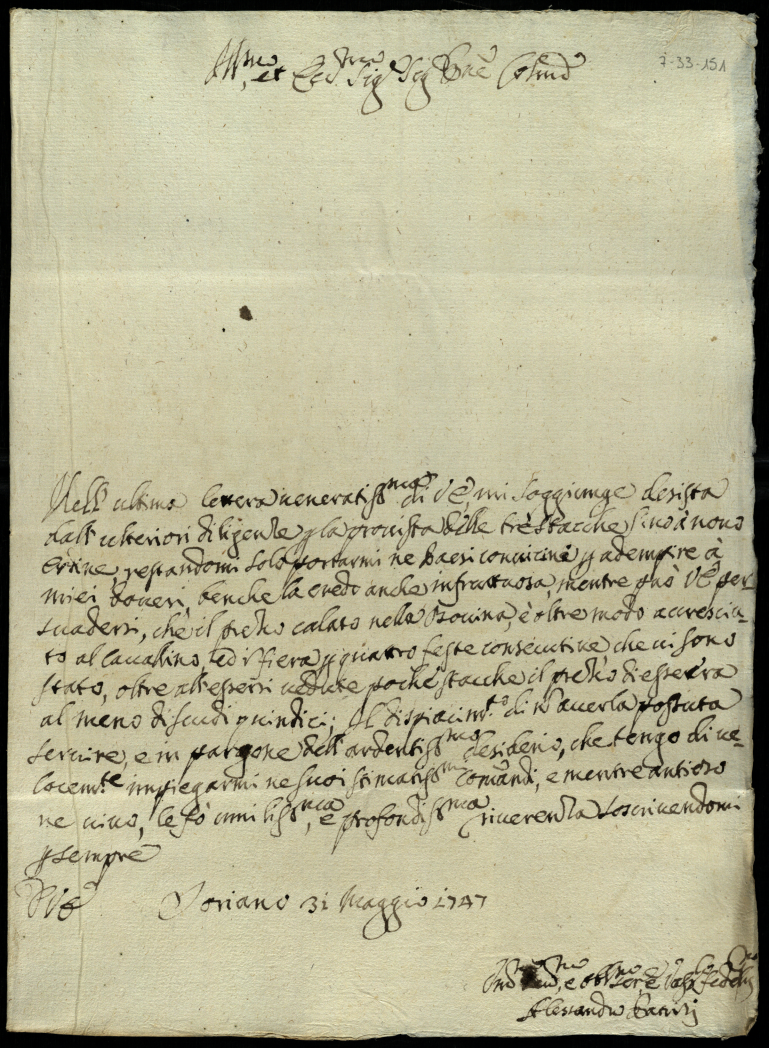 7-33-151
Ill.mo et Ecc.mo Sig.r Sig.r P̃ne Col̃mo
Nell'ultima lettera veneratiss.ma di V.E. mi soggiunge desista
dall'ulteriori diligenze p la provista delle trè stacche sino à novo
ordine, restandomi solo portarmi ne Paesi convicini p adempire à
miei doveri, benche la credo anche infruttuosa, mentre può V.E. per-
suadersi, che il prezzo calato nella Bovina, è oltre modo accresciu-
to al Cavallino, ed i fiera p quattro feste consecutive che vi sono
stato, oltre all'essersi vedute poche stacche il prezzo di esse era
al meno di scudi quindici; Il dispiacim.to di ñ averla possuta
servire, è in paragone dell'ardentiss.mo desiderio, che tengo di ve-
locem.te impiegarmi ne suoi stimatiss.mi comandi, e mentre antioso
ne vivo, le fò umiliss.ma, e profondiss.ma riverenza soscrivendomi
p sempre
D V.E. Soriano 31 Maggio 1747
e obl.mo Ser.e
Alessandro